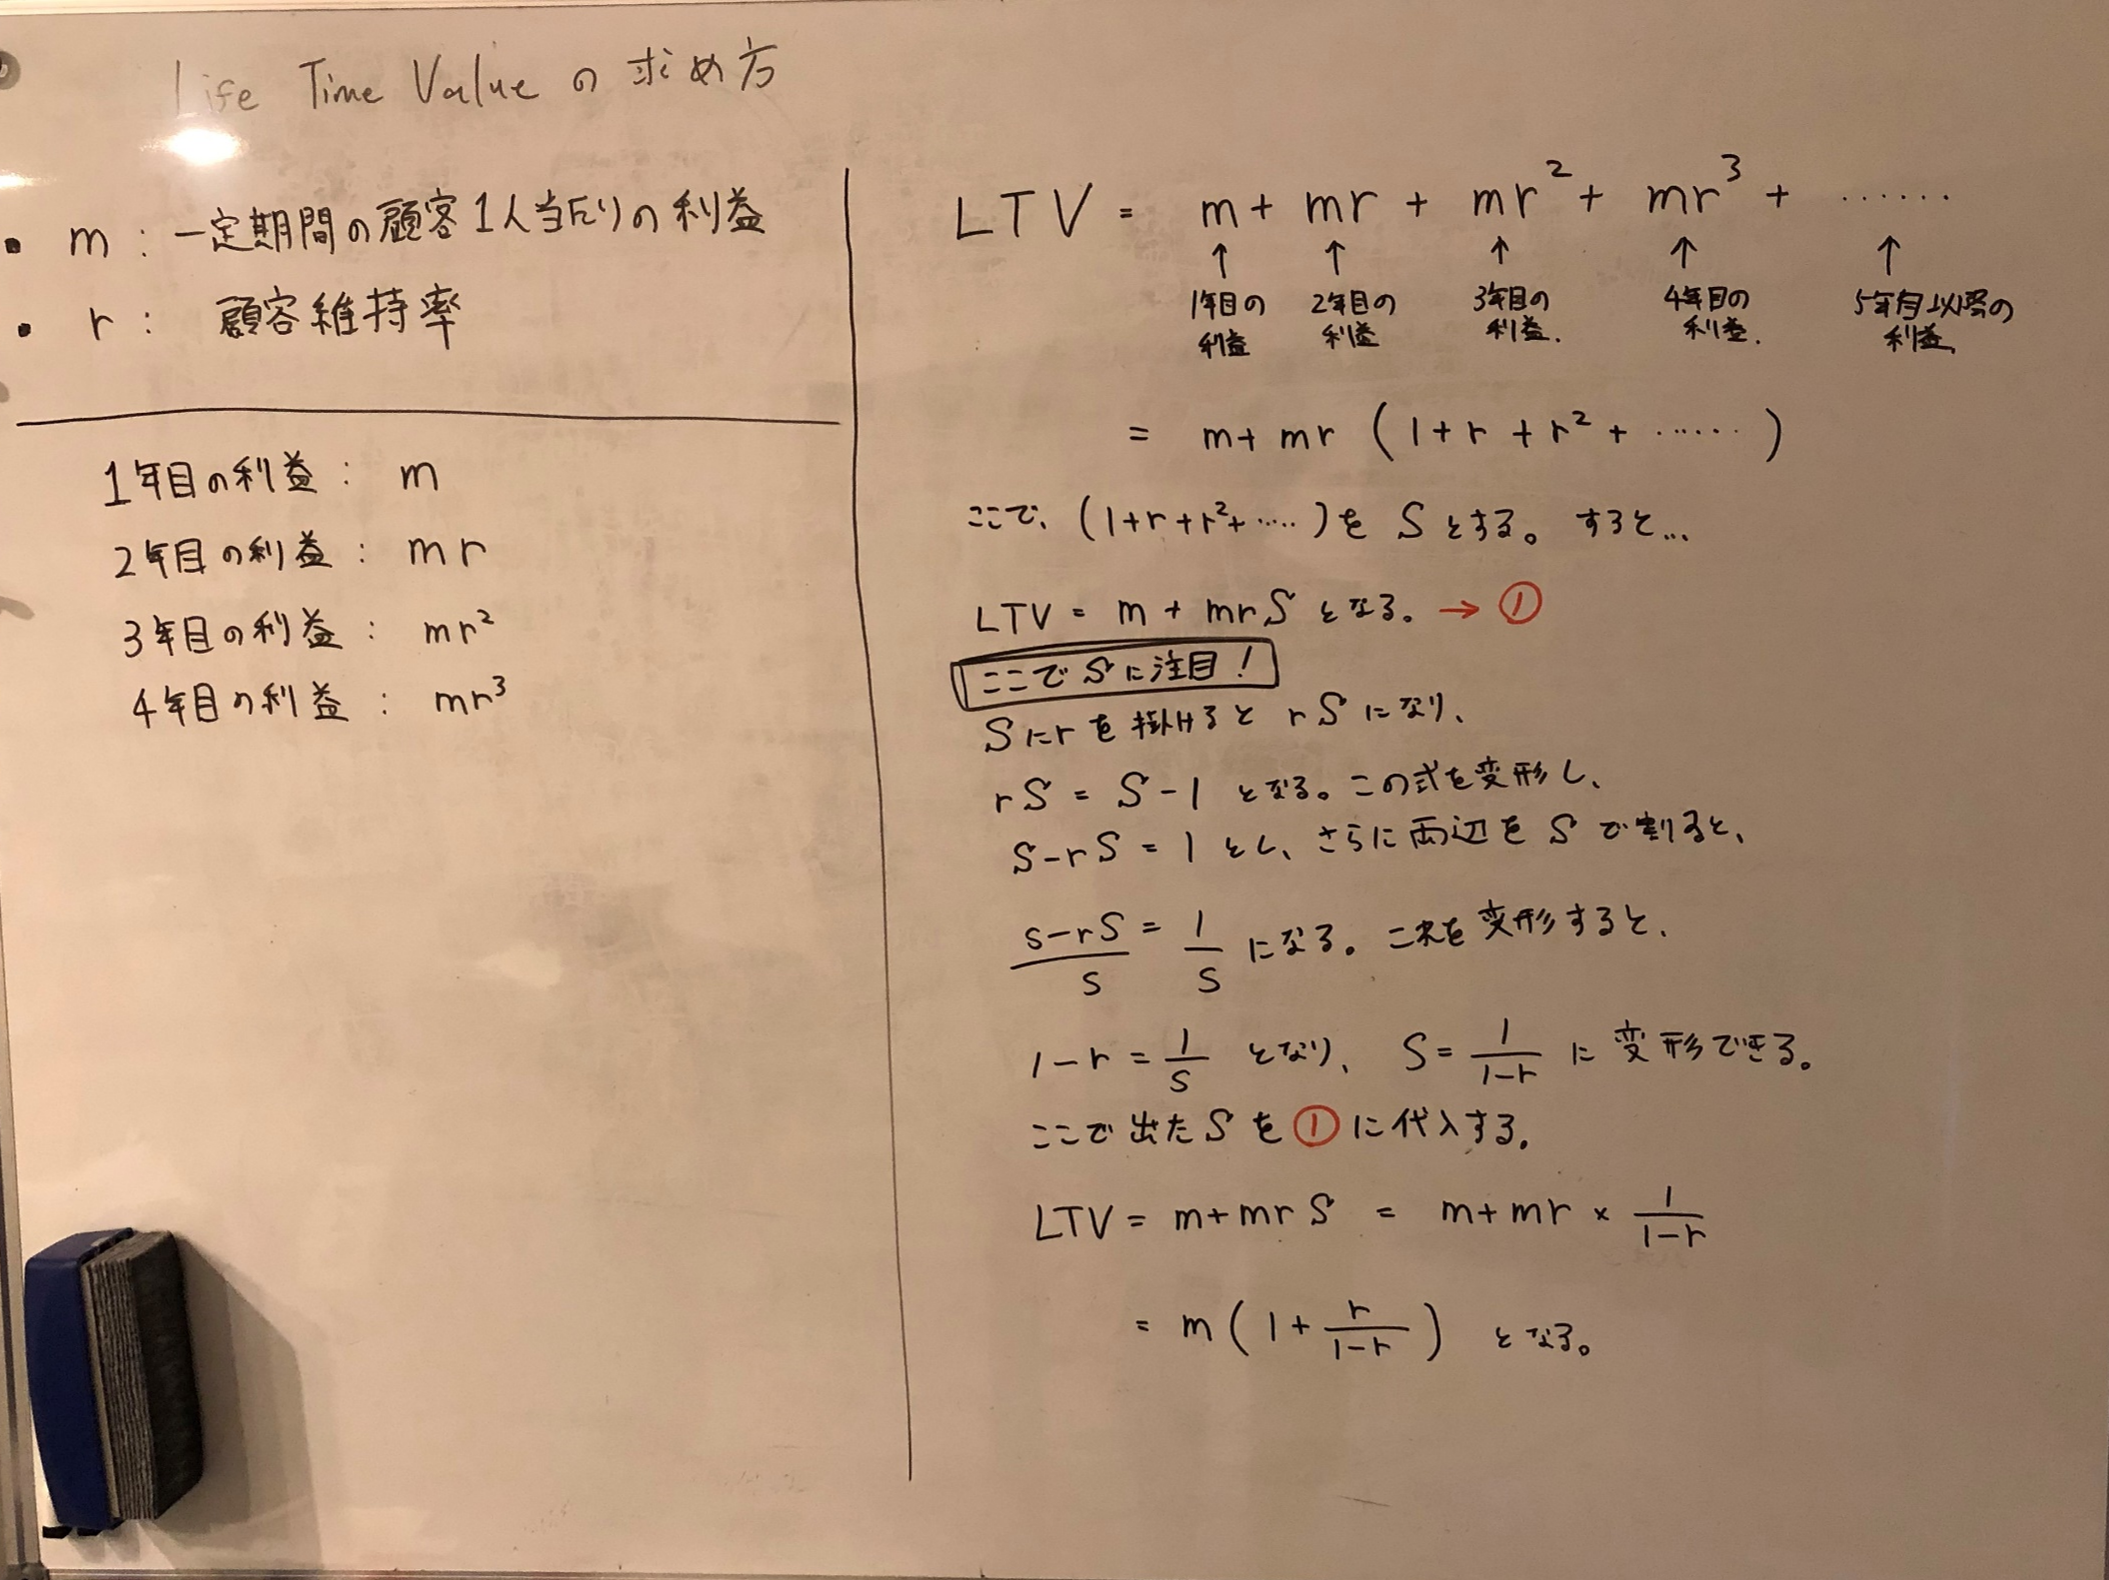 Life Time Value の求め方
・ m : 一定期間の顧客1人当たりの利益
・ r : 顧客維持率
1年目の利益 : m
2年目の利益 : mr
3年目の利益 : mr²
4年目の利益 : mr³
LTV = m + mr + mr² + mr³ + ……
↑ ↑ ↑ ↑ ↑
1年目の 2年目の 3年目の 4年目の 5年目以降の
利益 利益 利益. 利益. 利益.
= m + mr (1 + r + r² + ……)
ここで、(1+r+r²+……)を S とする。すると…
LTV = m + mrS となる。→ ①
ここで S に注目!
S に r を掛けると rS になり、
rS = S - 1 となる。この式を変形し、
S - rS = 1 とし、さらに両辺を S で割ると、
(S-rS)/S = 1/S になる。これを変形すると、
1-r = 1/S となり、S = 1/(1-r) に変形できる。
ここで出た S を ① に代入する。
LTV = m+mrS = m+mr × 1/(1-r)
= m(1 + r/(1-r)) となる。